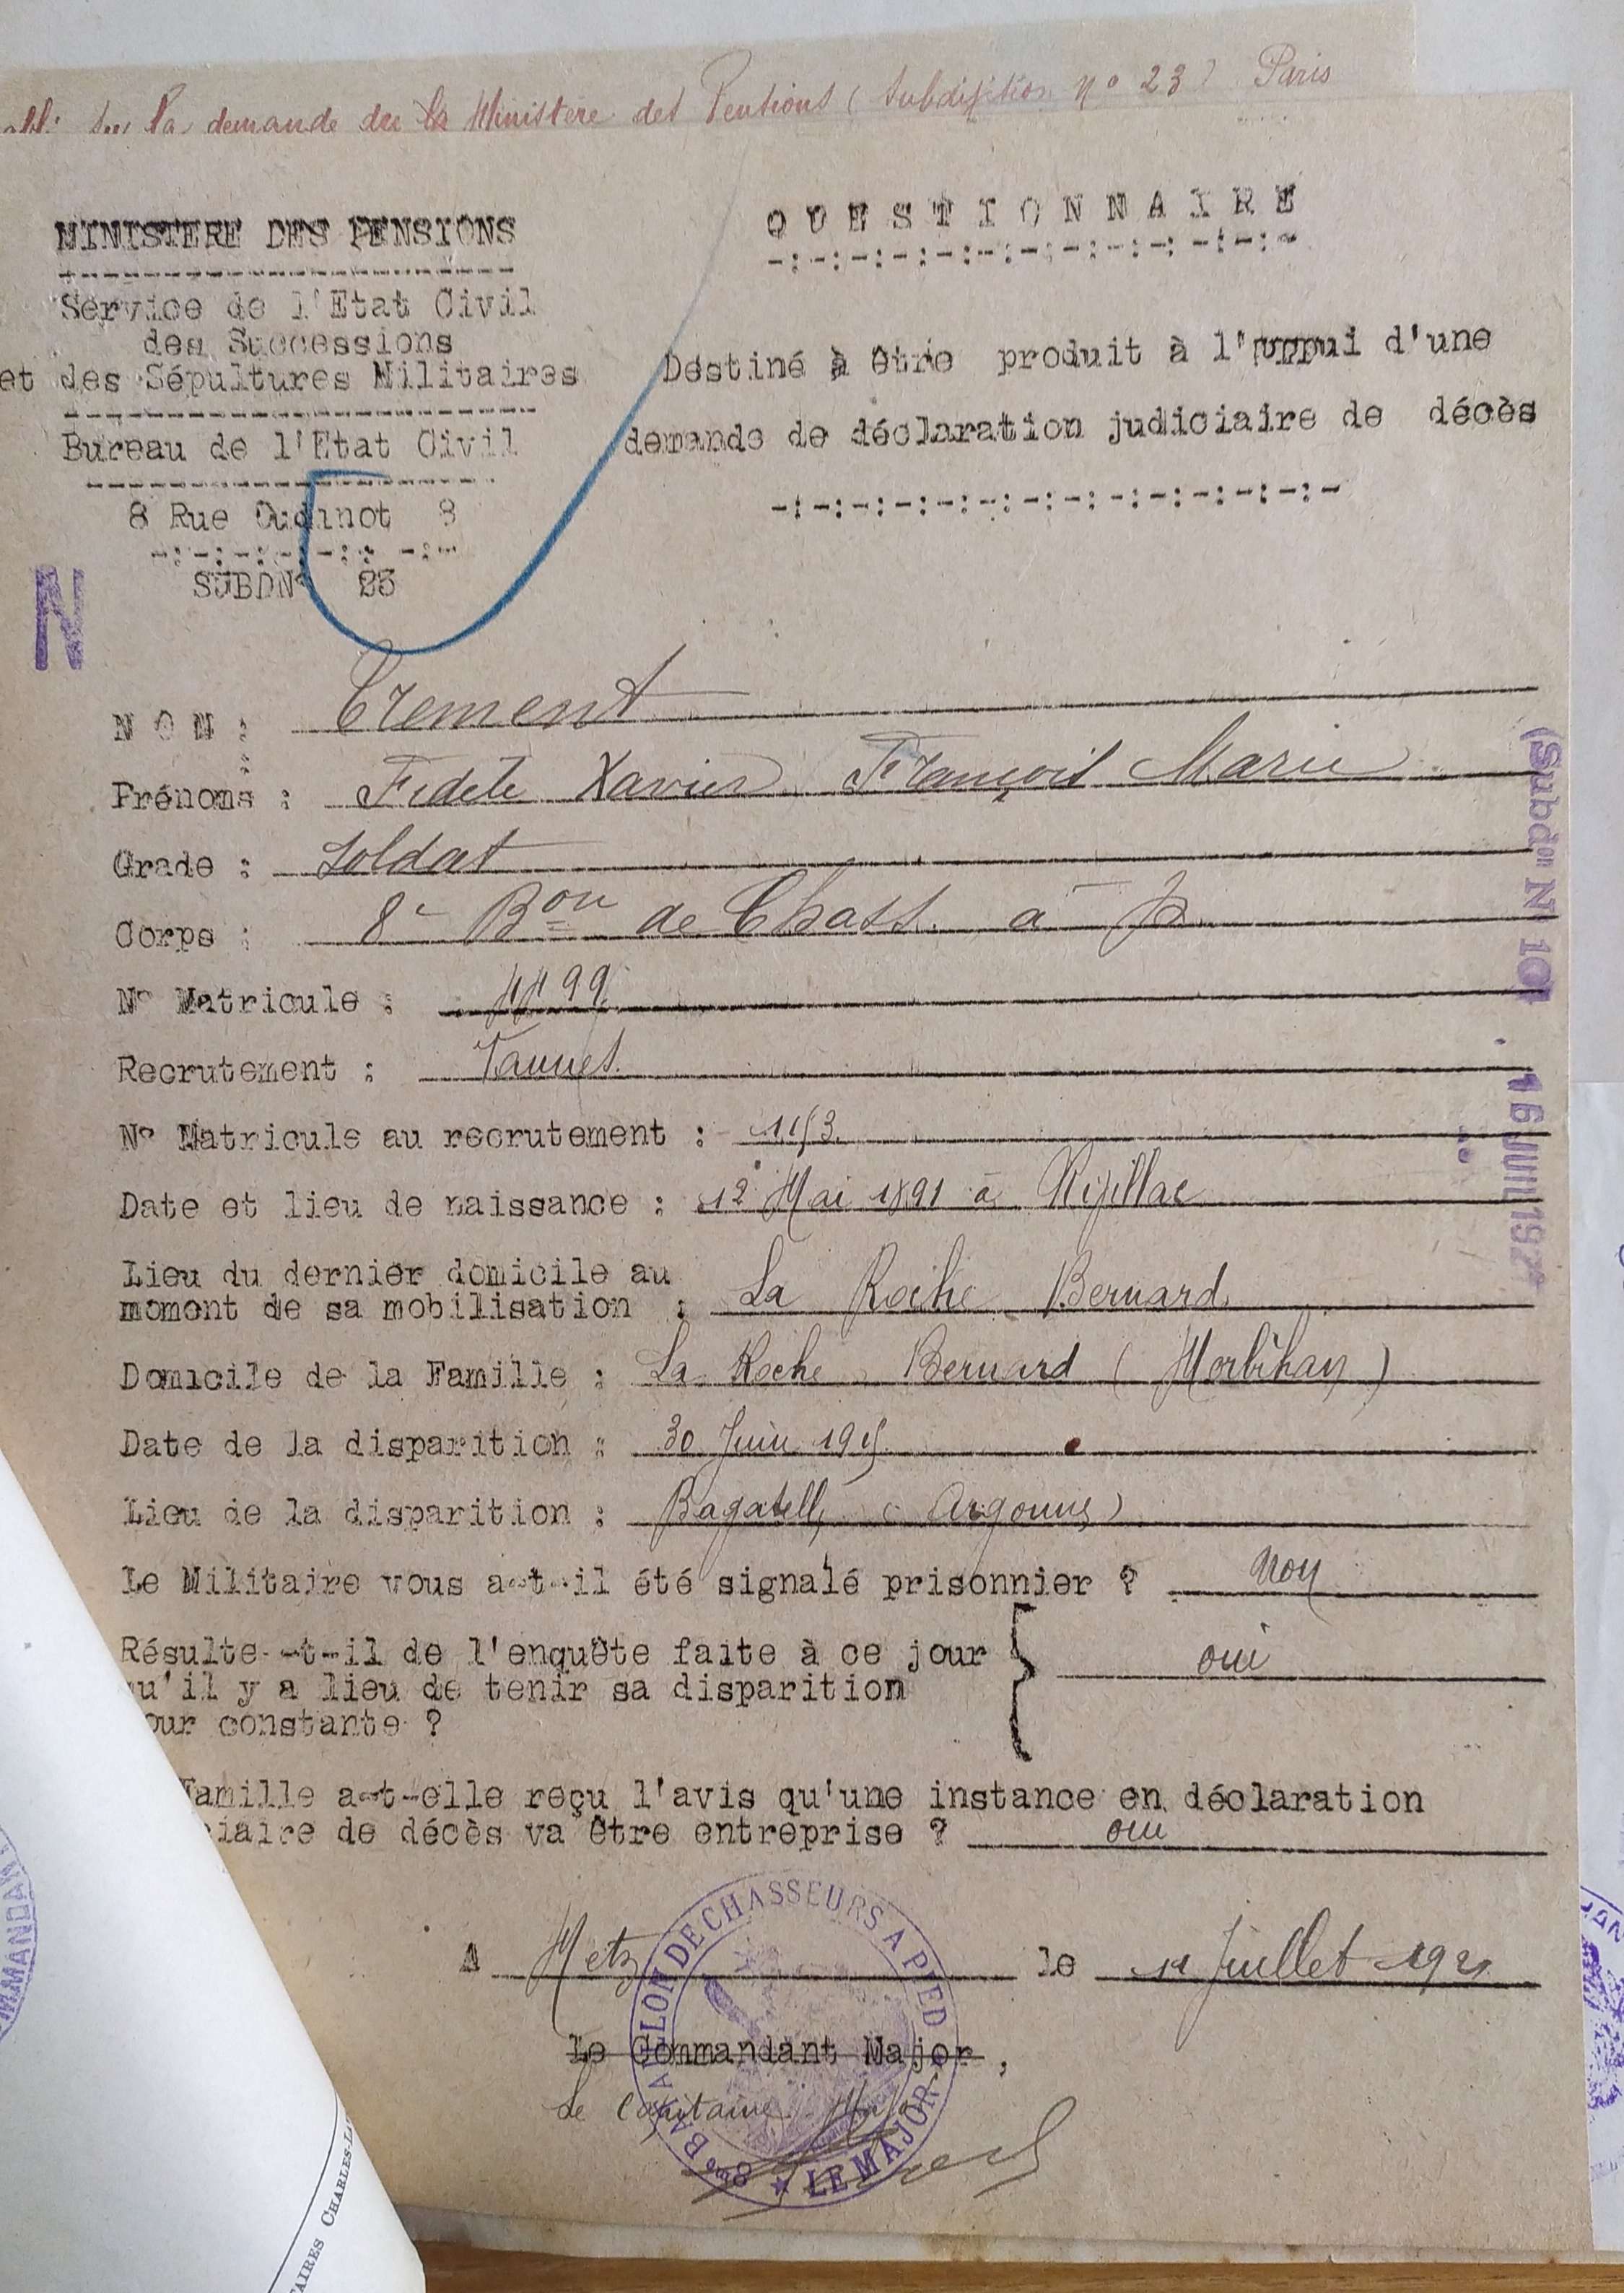 sur la demande du la Ministère des Pentions (Subdivition nº 23) Paris
MINISTERE DES PENSIONS
Service de l'Etat Civil
des Successions
et des Sépultures Militaires
Bureau de l'Etat Civil
8 Rue Oudinot 8
SUBDN° 23
N
QUESTIONNAIRE
Destiné à être produit à l'appui d'une
demande de déclaration judiciaire de décès
NOM : Crement
Prénoms : Fidèle Xavier François Marie
Grade : Soldat
Corps : 8e Bon de Chass. à P.
N° Matricule : 4499
Recrutement : Vannes
N° Matricule au recrutement : 1153
Date et lieu de naissance : 12 Mai 1891 à Nivillac
Lieu du dernier domicile au
moment de sa mobilisation : La Roche Bernard
Domicile de la Famille : La Roche Bernard (Morbihan)
Date de la disparition : 30 Juin 1915
Lieu de la disparition : Bagatelle (Argonne)
Le Militaire vous a-t-il été signalé prisonnier ? Non
Résulte-t-il de l'enquête faite à ce jour
qu'il y a lieu de tenir sa disparition
our constante ? oui
Famille a-t-elle reçu l'avis qu'une instance en déclaration
iaire de décès va être entreprise ? oui
A Metz le 11 Juillet 1921
Le Commandant Major,
Le Capitaine Major
8me BATAILLON DE CHASSEURS A PIED
★ LE MAJOR ★
(Subdon N° 101
16 JUIL 192
MMANDAN
AIRES CHARLES-L